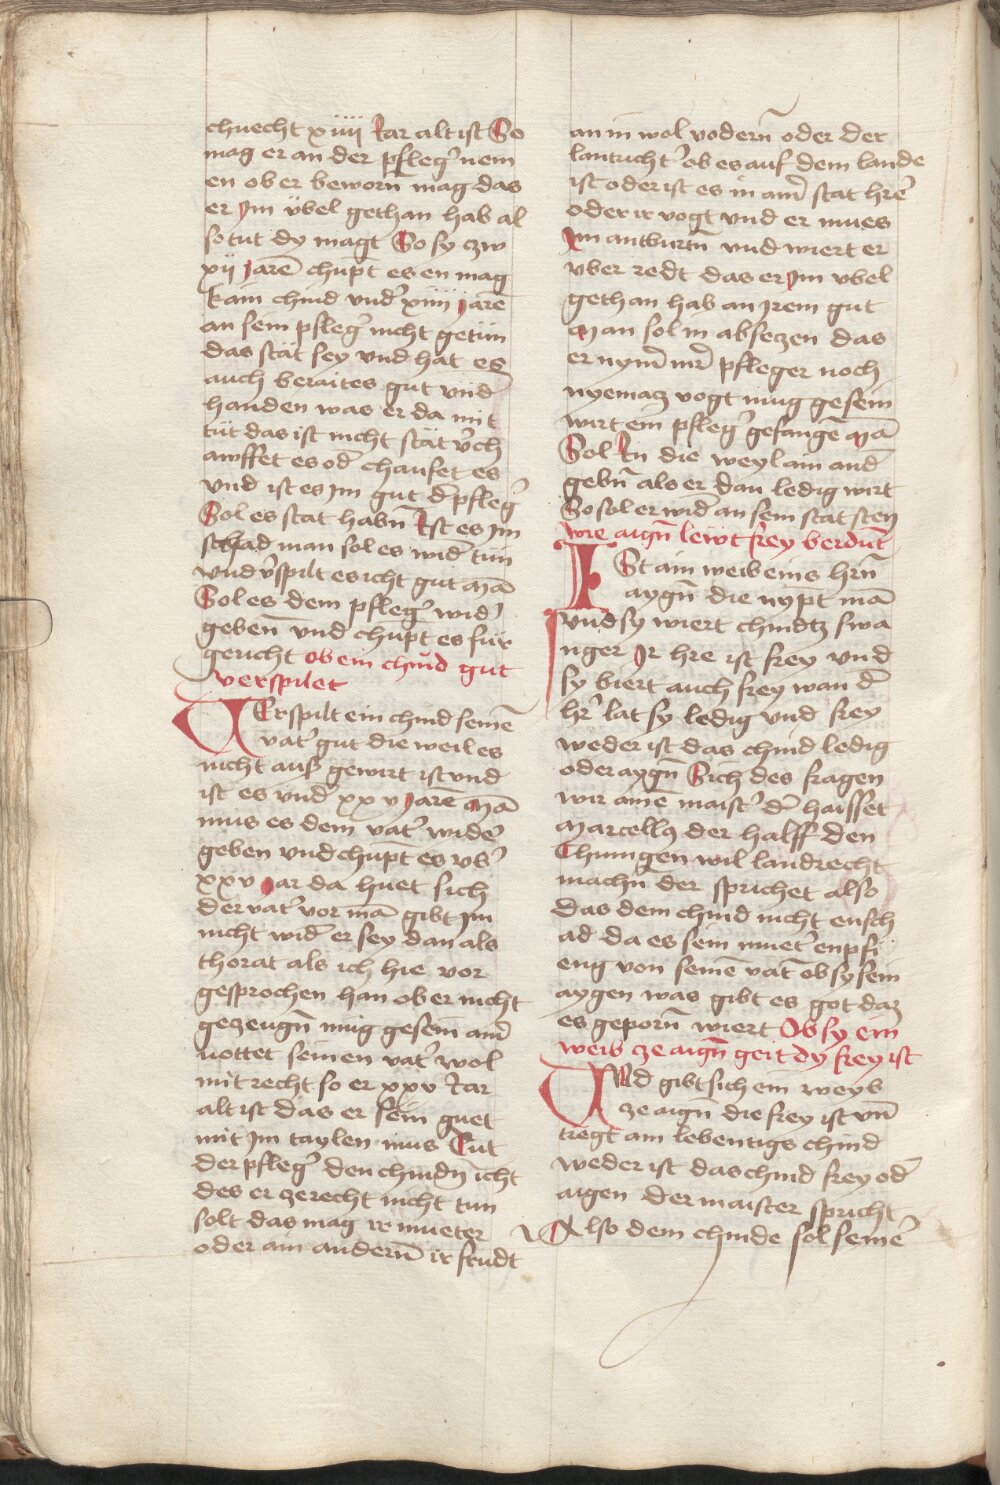 chnecht xiiii Jar alt ist So
mag er an der pfleg͛ nem
en ob er beworn̄ mag das
er Im v̈bel gethan hab al
so tut dy magt So sy zw
xij Jarē chūpt es en mag
kain chind vnd͛ xiiii jarē
an sein pfleg͛ nicht getün
das stät sey vnd hat es
auch beraites gut vnd
handen was er da mit
tüt das ist nicht stät v͛ch
awffet es od͛ chaufet es
vnd ist es Im gut d͛ pfleg͛
Sol es stat habn̄ Ist es Im
schad man sol es wid͛ tün
vnd v͛spilt es icht gut Mā
Sol es dem pfleg͛ wid͛
geben̄ vnd chūpt es für
gericht ob ein chind gut
verspilet
VErspilt ein chind seinē
vat͛ gut die weil es
nicht auß gewirt ist vnd
ist es vnd͛ xxv Jarē Mā
mus es dem vat͛ wider͛
geben vnd chūpt es vb͛
xxv Jar da huet sich
der vat͛ vor mā gibt Im
nicht wid͛ er sey dan als
thorat als ich hie vor
gesprochen han ob er nicht
gezeugn̄ müg gesein and͛
nottet seinen vat͛ wol
mit recht so er xxv Jar
alt ist das er sein guet
mit Im taylen mus Tut
der pfleg͛ den chindn̄ icht
des er ze recht nicht tun
solt das mag ir mueter
oder ain andern̄ ir frudt
an in wol vodern̄ oder der
lantricht͛ ob es auf dem lande
ist oder ist es in ain͛ stat hr͛e
oder ir vogt vnd er mues
Im antburtn̄ vnd wiert er
vber redt das er Im vbel
gethan hab an Irem gut
Man sol in absezen das
er nym͛ mr͛ pfleger noch
nyemaz vogt mug gesein
wirt ein pfleg͛ gefangē Mā
Sol In die weyl ain and͛
gebn̄ als er dan ledig wirt
So sol er wid͛ an sein stat sten
wie aign̄ lewt frey berdūt
ISt ain weib eins hrn̄
aygn̄ die nypt mā
vnd sy wiert chindtz swa
nger Ir hre ist frey vnd
sy biert auch frey wan d͛
hr͛ lat sy ledig vnd frey
weder ist das chind ledig
oder aygn̄ Sich des fragen
wir ainē maist͛ d͛ haisset
Marcellꝰ der halff den
Chunigen wil landrecht
machn̄ der sprichet also
das dem chind nicht ensch
ad da es sein muet͛ enpfi
eng von seinē vat͛ ob sy sein
aygen was gibt es got daz
es geporn̄ wiert Ob sy ein
weib ze aign̄ geit dy frey ist
VNd gibt sich ein weyb
ze aign̄ die frey ist vn̄
tregt ain lebentigs chind
weder ist das chind frey od͛
aigen der maister spricht
Also dem chinde sol seinē